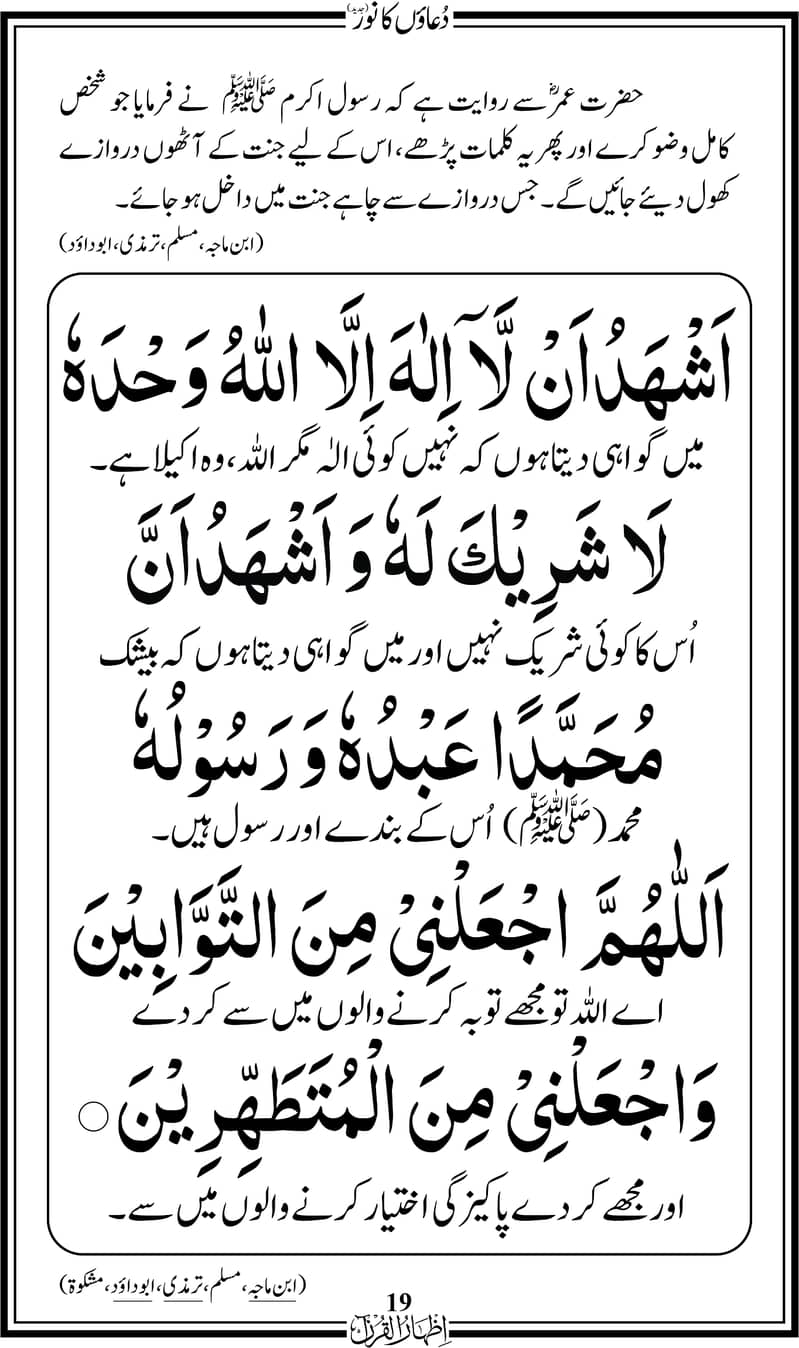 دُعاؤں کا نور (جدید)
حضرت عمرؓ سے روایت ہے کہ رسول اکرم ﷺ نے فرمایا جو شخص
کامل وضو کرے اور پھر یہ کلمات پڑھے، اس کے لیے جنت کے آٹھوں دروازے
کھول دیئے جائیں گے۔ جس دروازے سے چاہے جنت میں داخل ہو جائے۔
(ابن ماجہ، مسلم، ترمذی، ابوداؤد)
اَشْهَدُ اَنْ لَّاۤ اِلٰهَ اِلَّا اللّٰهُ وَحْدَهٗ
میں گواہی دیتا ہوں کہ نہیں کوئی الٰہ مگر اللہ، وہ اکیلا ہے۔
لَا شَرِيْكَ لَهٗ وَ اَشْهَدُ اَنَّ
اُس کا کوئی شریک نہیں اور میں گواہی دیتا ہوں کہ بیشک
مُحَمَّدًا عَبْدُهٗ وَ رَسُوْلُهٗ
محمد (ﷺ) اُس کے بندے اور رسول ہیں۔
اَللّٰهُمَّ اجْعَلْنِيْ مِنَ التَّوَّابِيْنَ
اے اللہ تو مجھے توبہ کرنے والوں میں سے کر دے
وَاجْعَلْنِيْ مِنَ الْمُتَطَهِّرِيْنَ ○
اور مجھے کر دے پاکیزگی اختیار کرنے والوں میں سے۔
(ابن ماجہ، مسلم، ترمذی، ابوداؤد، مشکوٰۃ)
19
اِظہارُ القُرآن